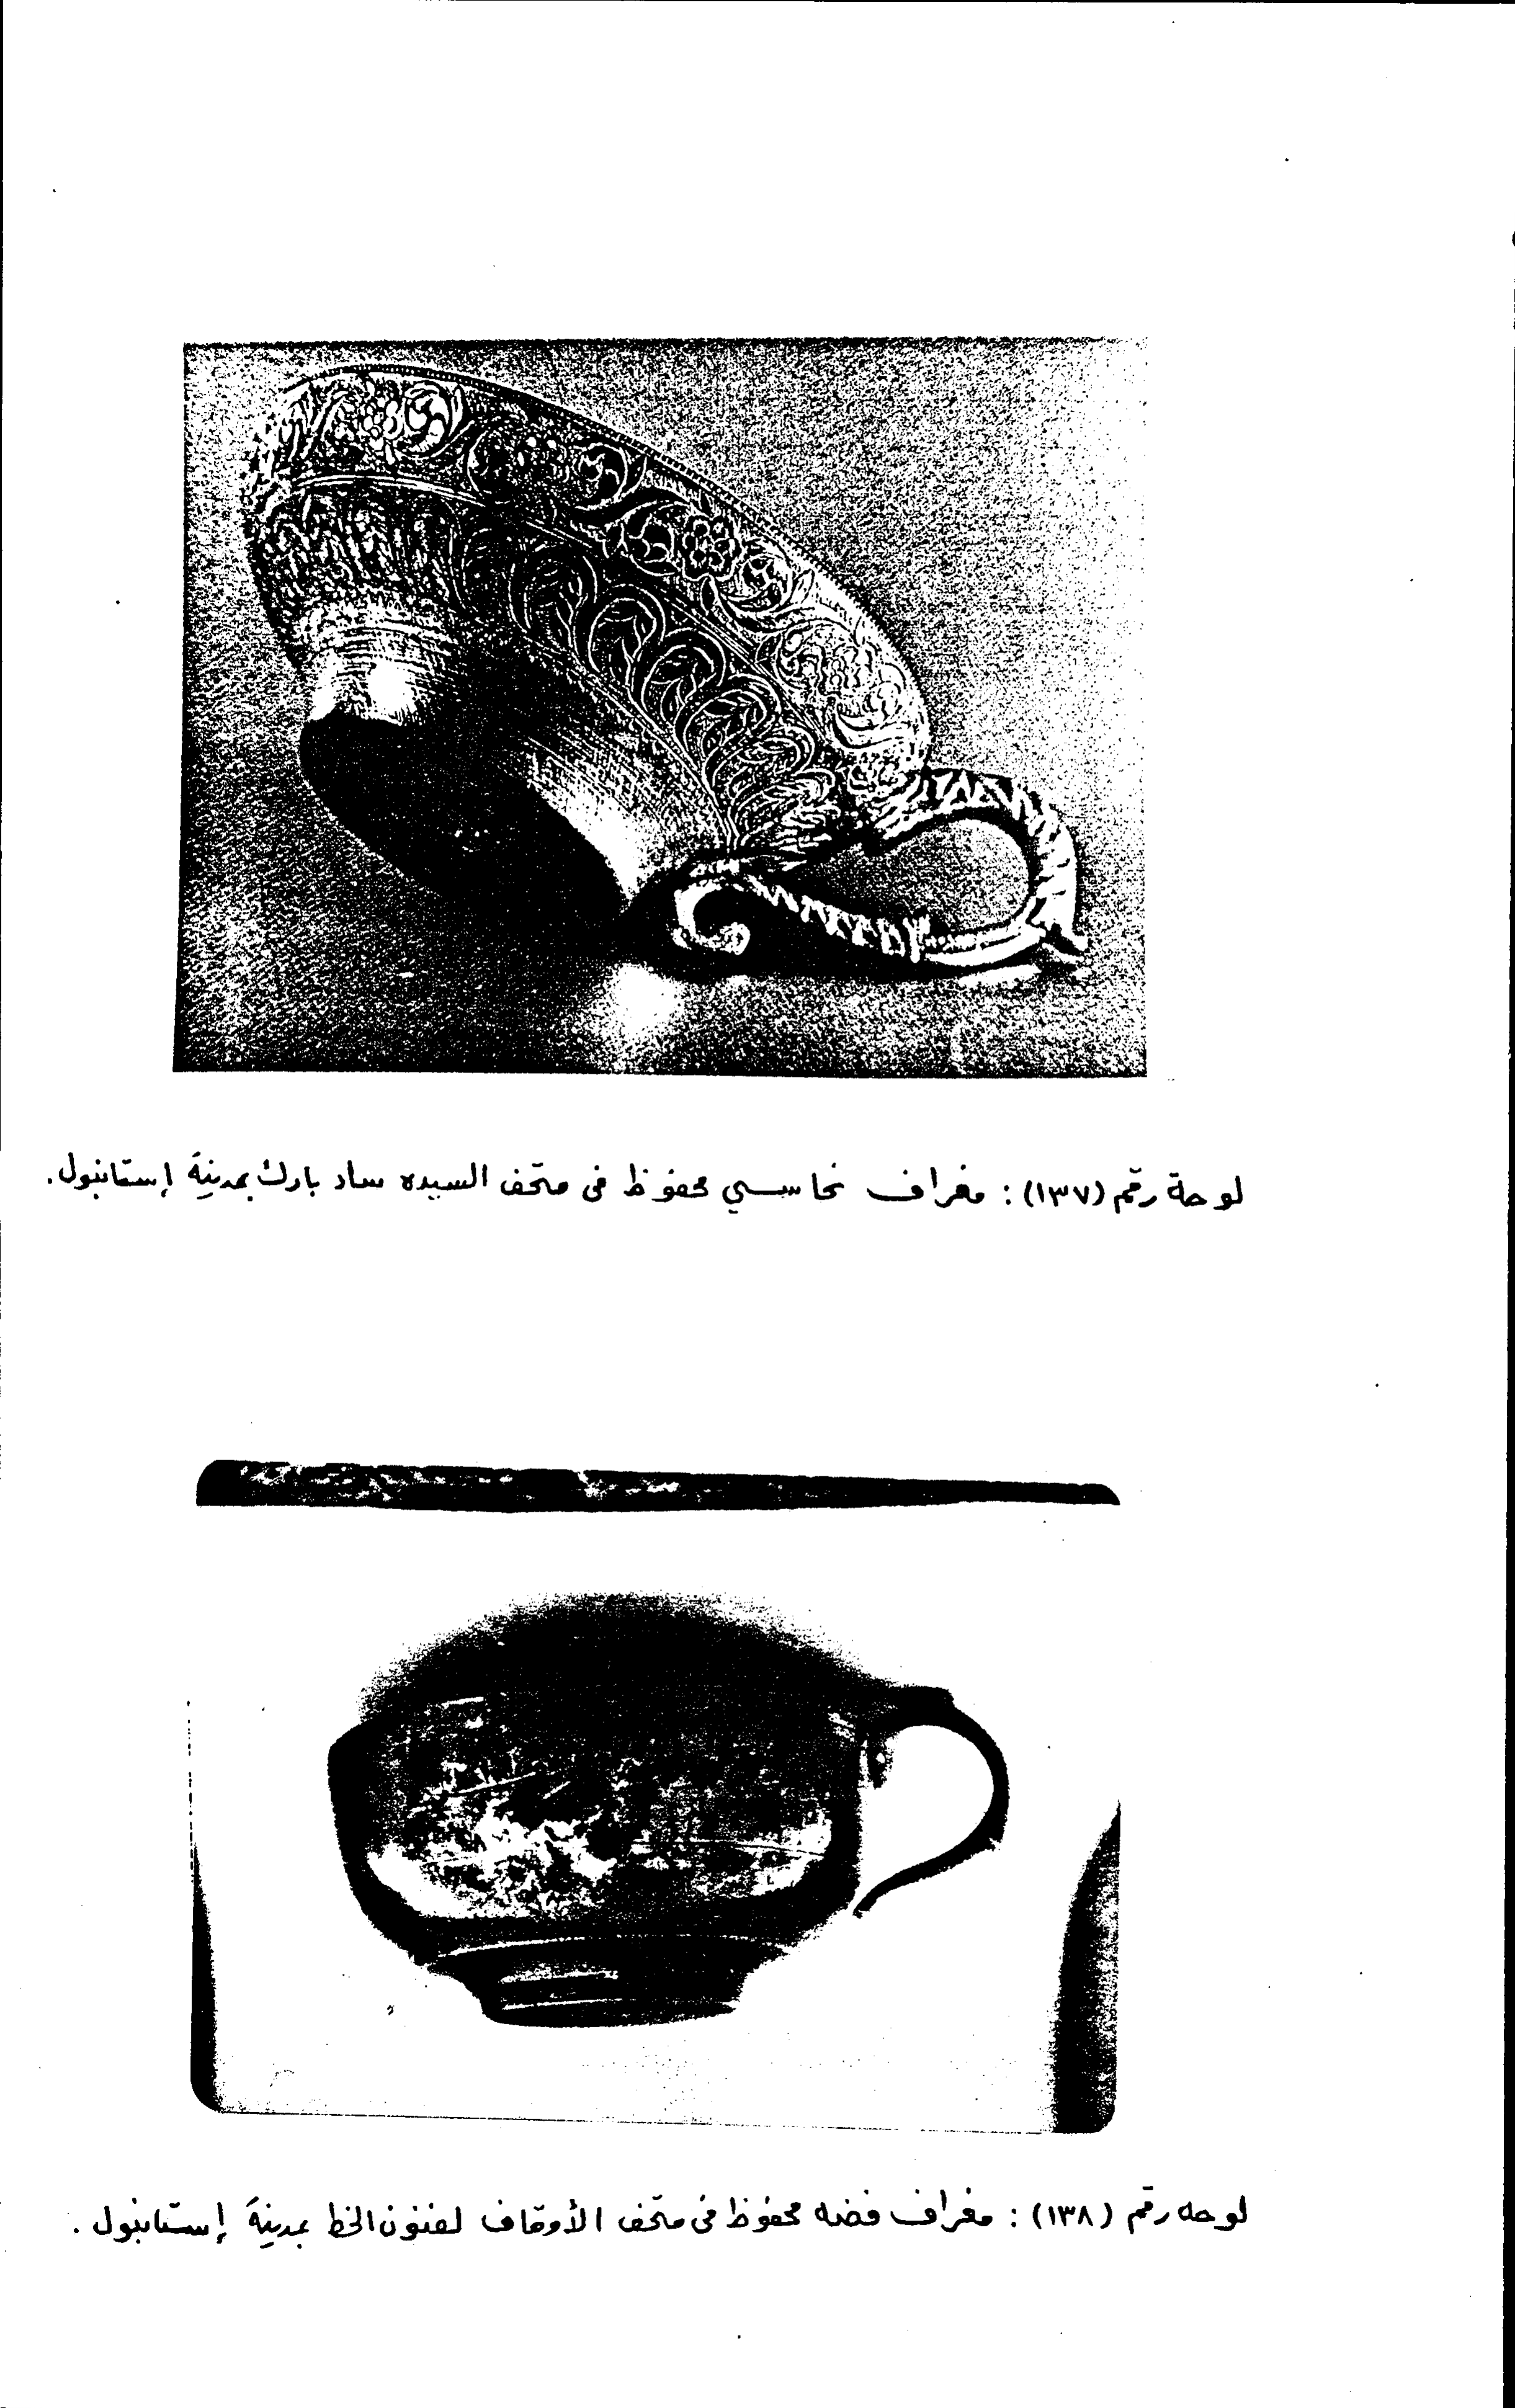 لوحة رقم (١٣٧) : مغراف نحاسي محفوظ فى متحف السيده ساد بارك بمدينة إستانبول.
لوحه رقم (١٣٨) : مغراف فضه محفوظ فى متحف الأوقاف لفنون الخط بمدينة إستانبول .